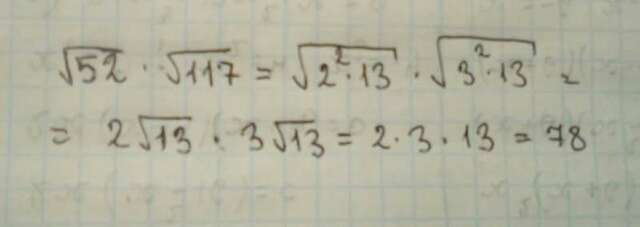 √52 · √117 = √2²·13 · √3²·13 =
= 2√13 · 3√13 = 2·3·13 = 78